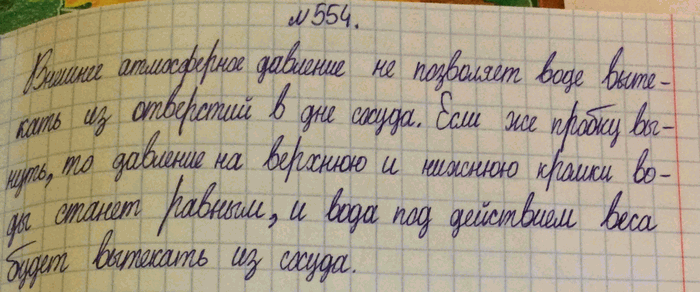 №554.
Внешнее атмосферное давление не позволяет воде выте-
кать из отверстий в дне сосуда. Если же пробку вы-
нуть, то давление на верхнюю и нижнюю кромки во-
ды станет равным, и вода под действием веса
будет вытекать из сосуда.